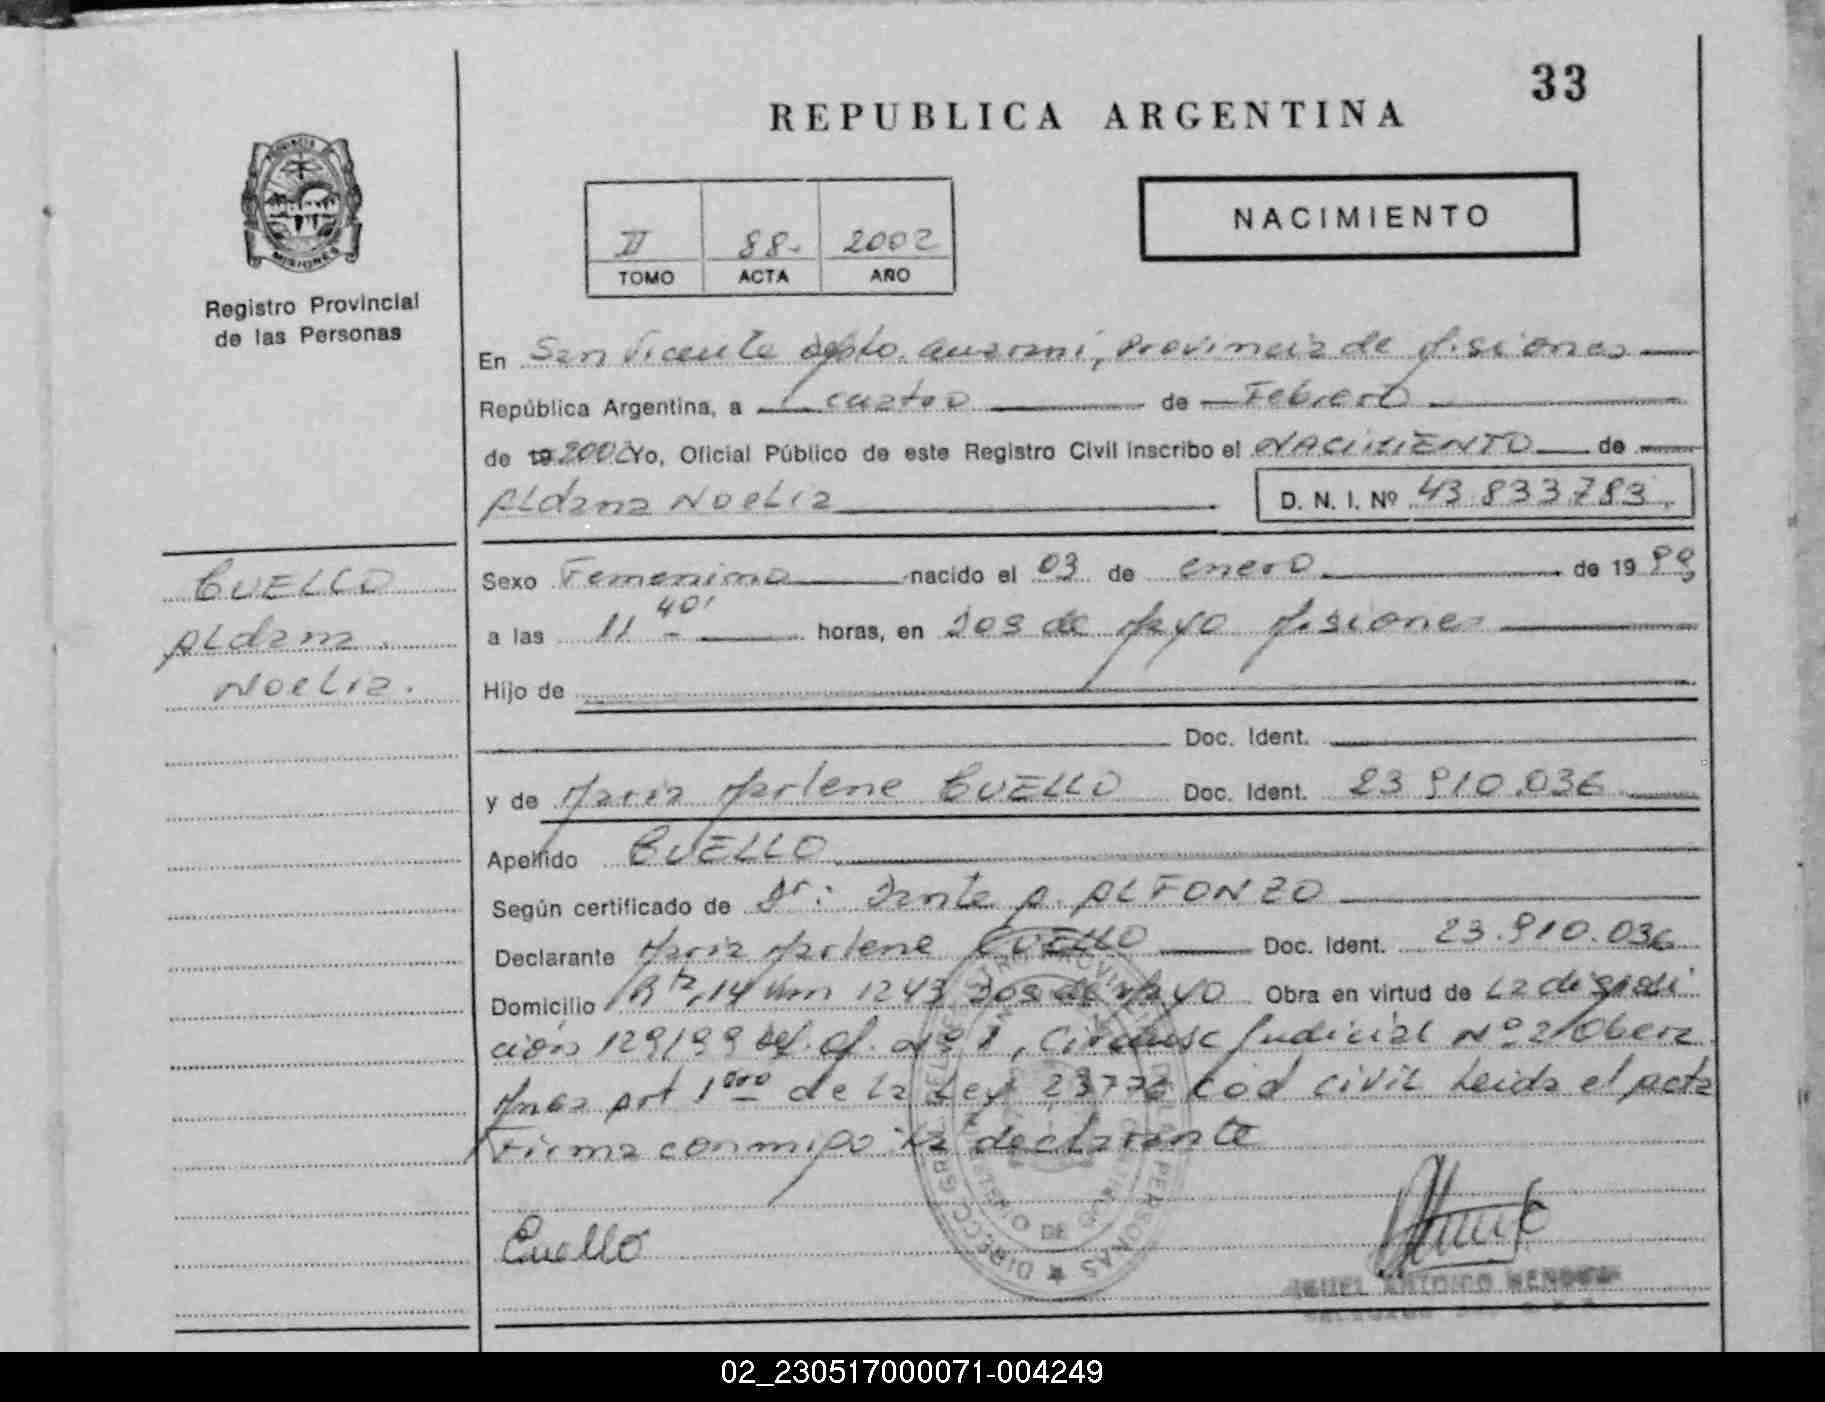 33
REPUBLICA ARGENTINA
NACIMIENTO
II 88- 2002
TOMO ACTA AÑO
PROVINCIA
MISIONES
Registro Provincial
de las Personas
En San Vicente dpto. Guarani, Provincia de Misiones
República Argentina, a cuatro de Febrero
de 19 2002 Yo, Oficial Público de este Registro Civil inscribo el NACIMIENTO de
Aldana Noelia D. N. I. Nº 43.833.783.
CUELLO
Aldana
Noelia.
Sexo Femenino nacido el 03 de enero de 19 99
a las 11 40' horas, en Dos de Mayo Misiones
Hijo de
Doc. Ident.
y de Maria Marlene CUELLO Doc. Ident. 23 910.036
Apellido CUELLO
Según certificado de Dr: Dante A. ALFONZO
Declarante Maria Marlene CUELLO Doc. Ident. 23.910.036
Domicilio Rta. 14 km 1243 Dos de Mayo Obra en virtud de La disposi
ción 129/99 Nº 1, Circunsc Judicial Nº 2 Obera
Mnes Art 1ero de la Ley 23776 Cod Civil Leida el acta
Firma conmigo la declarante
Cuello
DE
ANTONIO